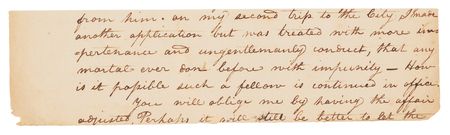 from him. on my second trip to the City I made
another application but was treated with more im
pertenance and ungentlemanly conduct, that any
mortal ever don before with impunity – How
is it possible such a fellow is continued in office.
You will oblige me by having the affair
adjusted. Perhaps it will still be better to let the